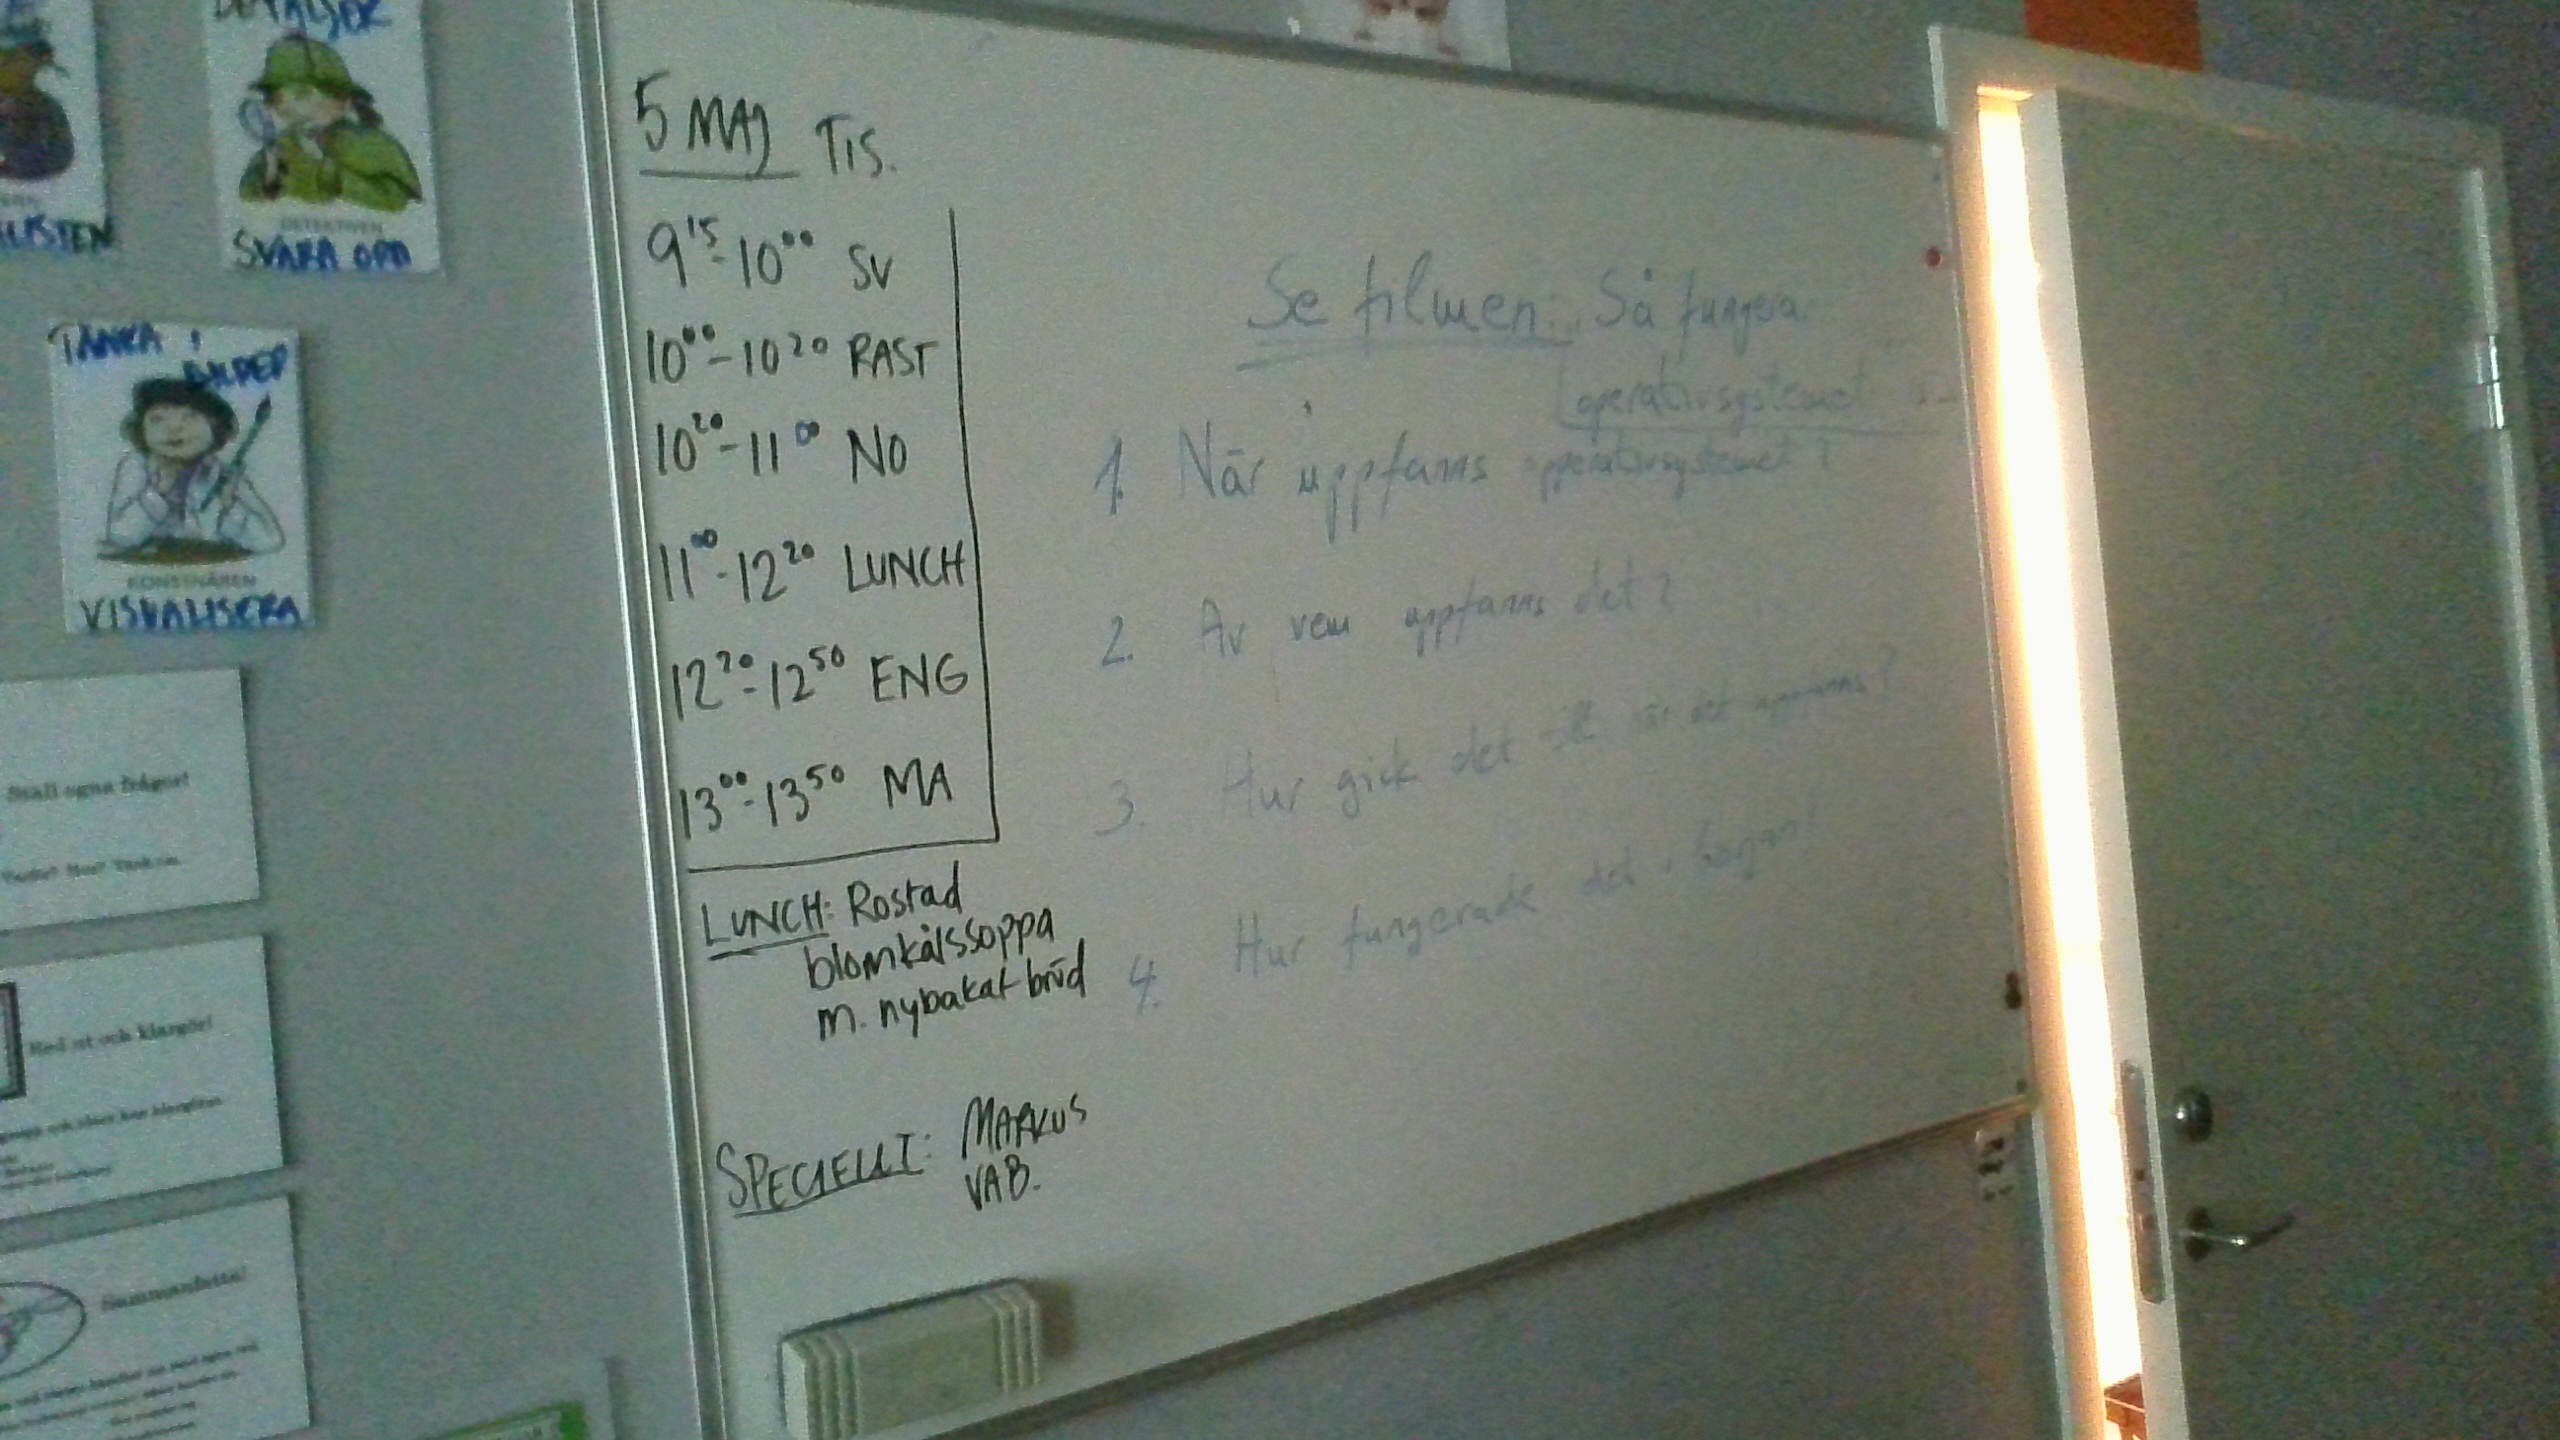 SVARA
TÄNKA I
BILDER
KONSTNÄREN
VISUALISERA
Ställ egna frågor!
Red ut och klargör!
Sammanfatta!
5 MAJ TIS.
9 15 - 10 00 SV
10 00 - 10 20 RAST
10 20 - 11 00 NO
11 00 - 12 20 LUNCH
12 20 - 12 50 ENG
13 00 - 13 50 MA
LUNCH: Rostad
blomkålssoppa
m. nybakat bröd
SPECIELLT: MARKUS
VAB.
Se filmen: Så fungerar
operativsystemet
1. När uppfanns operativsystemet?
2. Av vem uppfanns det?
3. Hur gick det till när det uppfanns?
4. Hur fungerade det i början?